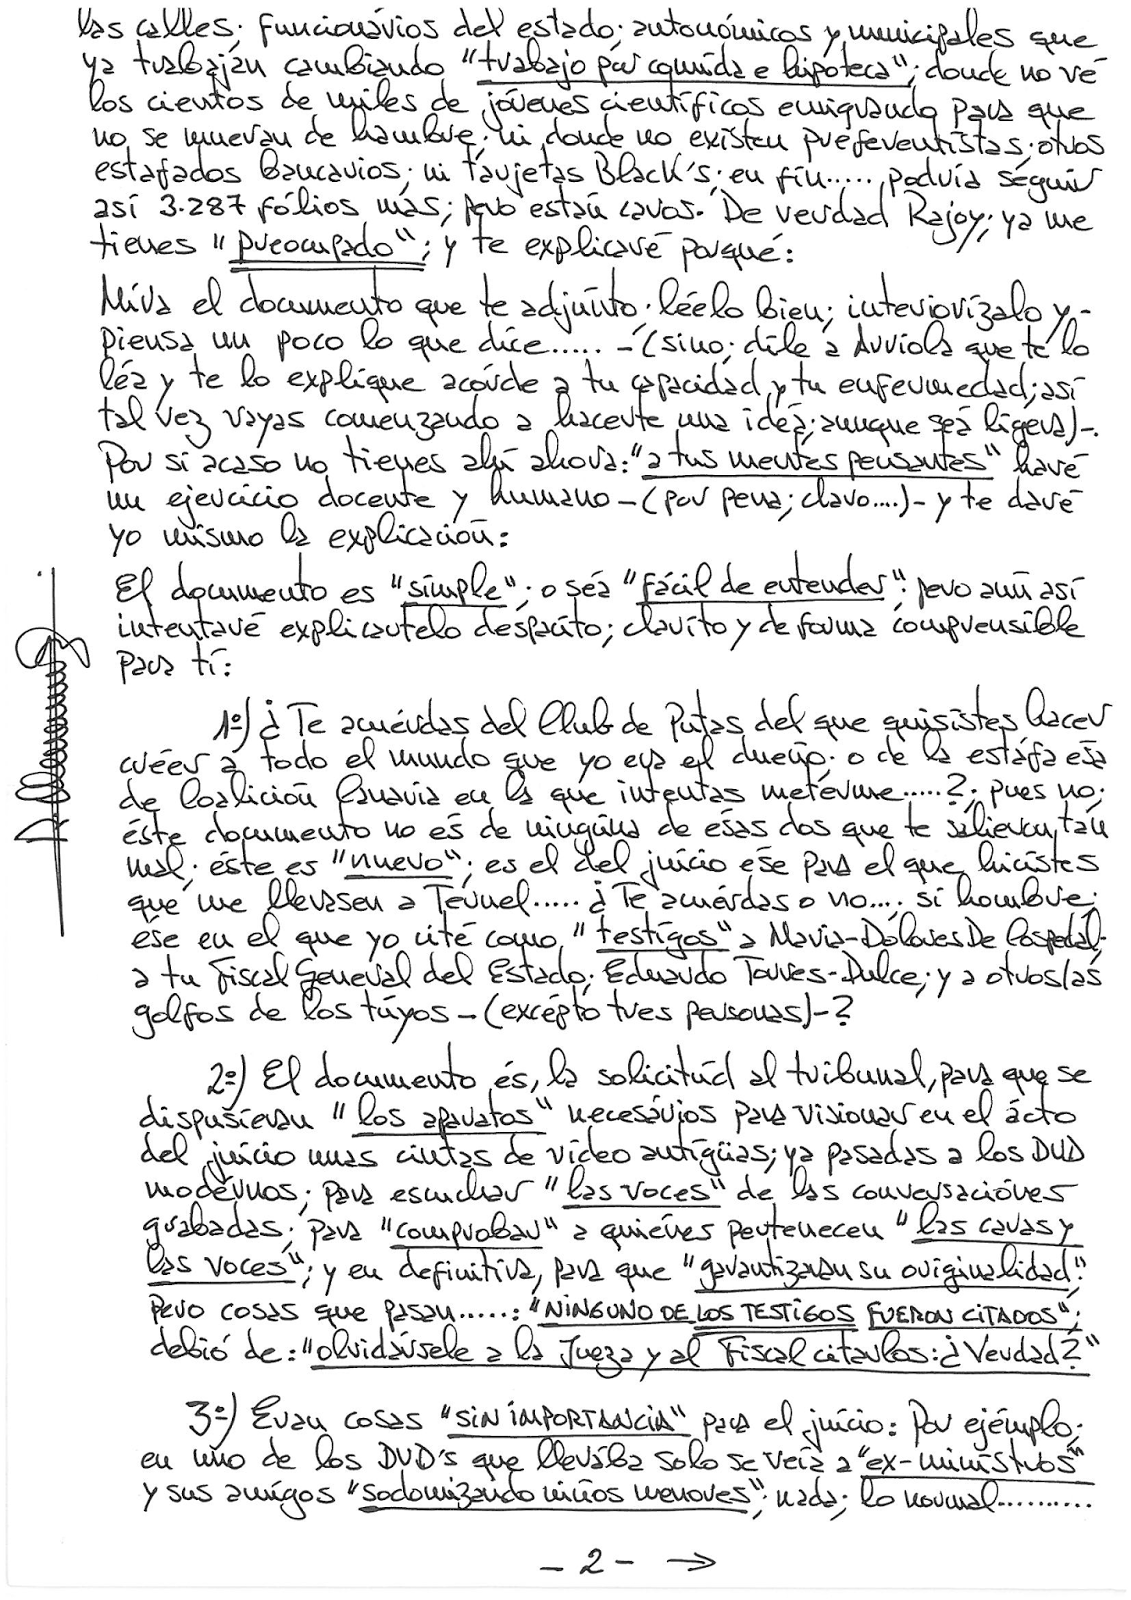 las calles; funcionários del estado; autonómicos y municipales que
ya trabajan cambiando "trabajo por comida e hipoteca"; donde no vé
los cientos de miles de jóvenes científicos emigrando para que
no se mueran de hambre; ni donde no existen preferentistas; otros
estafados bancarios; ni tarjetas Black's; en fin..... podría seguir
así 3.287 fólios más; pero están caros. De verdad Rajoy; ya me
tienes "preocupado"; y te explicaré porqué:
Mira el documento que te adjunto; léelo bien; interiorízalo y,-
piensa un poco lo que dice..... -(sino; díle a Arriola que te lo
léa y te lo explique acórde a tu capacidad y tu enfermedad; así
tal vez vayas comenzando a hacerte una idéa; aunque séa ligera)-.
Por si acaso no tienes ahí ahora: "a tus mentes pensantes" haré
un ejercício docente y humano -(por pena; claro....)- y te daré
yo mismo la explicación:
El documento es "símple"; o séa "fácil de entender"; pero aún así
intentaré explicartelo despacito; clarito y de forma comprensible
para tí:
1º) ¿Te acuérdas del Club de Putas del que quisistes hacer
créer a todo el mundo que yo era el dueño; o de la estáfa esa
de Coalición Canaria en la que intentas metérme.....?; pues no;
éste documento no és de ningúna de esas dos que te saliéron tan
mal; éste es "nuevo"; es el del juício ese para el que hicístes
que me llevasen a Téruel..... ¿Te acuérdas o no....; si hombre;
ése en el que yo cité como "testígos" a María-Dolores De Cospedal-
a tu Fiscal General del Estado; Eduardo Torres-Dulce; y a otros/as
golfos de los túyos -(excépto tres personas)-?
2º) El documento és, la solicitud al tribunal, para que se
dispusieran "los aparatos" necesários para visionar en el ácto
del juício unas cintas de vídeo antigüas; ya pasadas a los DVD
modérnos; para escuchar "las voces" de las conversaciónes
grabadas; para "comprobar" a quiénes pertenecen "las caras y
las voces"; y en definitiva, para que "garantizaran su originalidad".
Pero cosas que pasan......: "NINGUNO DE LOS TESTIGOS FUERON CITADOS";
debió de: "olvidársele a la Jueza y al Fiscal citarlos: ¿Verdad?"
3º) Eran cosas "SIN IMPORTANCIA" para el juício: Por ejémplo;
en uno de los DVD's que llevába solo se veía a "ex-minístros"
y sus amígos "sodomizando niños menores"; nada; lo normal..........
- 2 - →